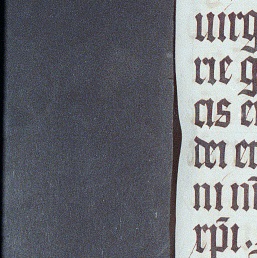 uirg
rie g
cis e
dei e
ni m̅
xp̅i.